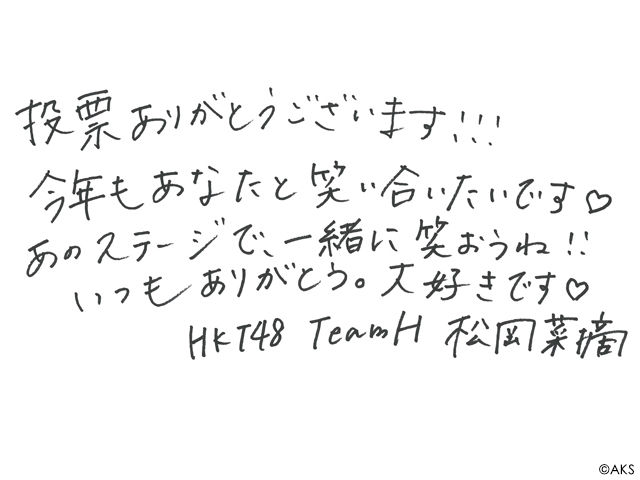 投票ありがとうございます!!!
今年もあなたと笑い合いたいです♡
あのステージで、一緒に笑おうね!!
いつもありがとう。大好きです♡
HKT48 TeamH 松岡菜摘
©AKS